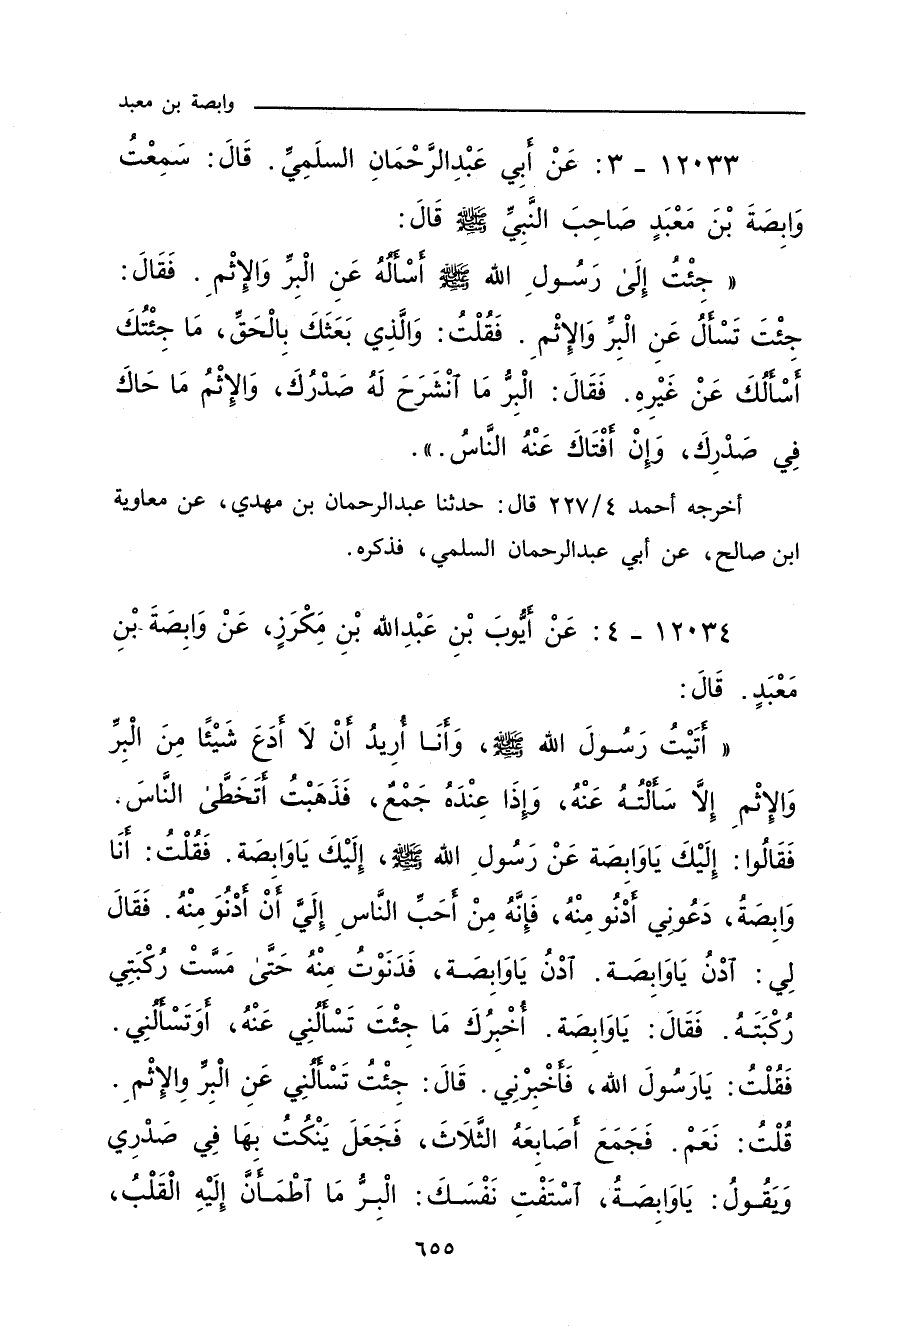 وابصة بن معبد
١٢٠٣٣ ـ ٣: عَنْ أَبِي عَبْدِالرَّحْمَانِ السلَمِيِّ. قَالَ: سَمِعْتُ
وَابِصَةَ بْنَ مَعْبَدٍ صَاحِبَ النَّبِيِّ ﷺ قَالَ:
« جِئْتُ إِلَىٰ رَسُولِ الله ﷺ أَسْأَلُهُ عَنِ الْبِرِّ وَالإِثْمِ. فَقَالَ:
جِئْتَ تَسْأَلُ عَنِ الْبِرِّ وَالإِثْمِ. فَقُلْتُ: وَالَّذِي بَعَثَكَ بِالْحَقِّ، مَا جِئْتُكَ
أَسْأَلُكَ عَنْ غَيْرِهِ. فَقَالَ: الْبِرُّ مَا ٱنْشَرَحَ لَهُ صَدْرُكَ، وَالإِثْمُ مَا حَاكَ
فِي صَدْرِكَ، وَإِنْ أَفْتَاكَ عَنْهُ النَّاسُ.».
أخرجه أحمد ٢٢٧/٤ قال: حدثنا عبدالرحمان بن مهدي، عن معاوية
ابن صالح، عن أبي عبدالرحمان السلمي، فذكره.
١٢٠٣٤ ـ ٤: عَنْ أَيُّوبَ بْنِ عَبْدِالله بْنِ مِكْرَزٍ، عَنْ وَابِصَةَ بْنِ
مَعْبَدٍ. قَالَ:
« أَتَيْتُ رَسُولَ الله ﷺ، وَأَنَا أُرِيدُ أَنْ لَا أَدَعَ شَيْئًا مِنَ الْبِرِّ
وَالإِثْمِ إِلَّا سَأَلْتُهُ عَنْهُ، وَإِذَا عِنْدَهُ جَمْعٌ، فَذَهَبْتُ أَتَخَطَّىٰ النَّاسَ.
فَقَالُوا: إِلَيْكَ يَاوَابِصَة عَنْ رَسُولِ الله ﷺ، إِلَيْكَ يَاوَابِصَة. فَقُلْتُ: أَنَا
وَابِصَةُ، دَعُونِي أَدْنُو مِنْهُ، فَإِنَّهُ مِنْ أَحَبِّ النَّاسِ إِلَيَّ أَنْ أَدْنُوَ مِنْهُ. فَقَالَ
لِي: ٱدْنُ يَاوَابِصَة. ٱدْنُ يَاوَابِصَة، فَدَنَوْتُ مِنْهُ حَتَّىٰ مَسَّتْ رُكْبَتِي
رُكْبَتَهُ. فَقَالَ: يَاوَابِصَة. أُخْبِرُكَ مَا جِئْتَ تَسْأَلُنِي عَنْهُ، أَوَتَسْأَلُنِي.
فَقُلْتُ: يَارَسُولَ الله، فَأَخْبِرْنِي. قَالَ: جِئْتُ تَسْأَلُنِي عَنِ الْبِرِّ والِإثْمِ.
قُلْتُ: نَعَمْ. فَجَمَعَ أَصَابِعَهُ الثَّلَاثَ، فَجَعَلَ يَنْكُتُ بِهَا فِي صَدْرِي
وَيَقُولُ: يَاوَابِصَةُ، ٱسْتَفْتِ نَفْسَكَ: الْبِرُّ مَا ٱطْمَأَنَّ إِلَيْهِ الْقَلْبُ،
٦٥٥